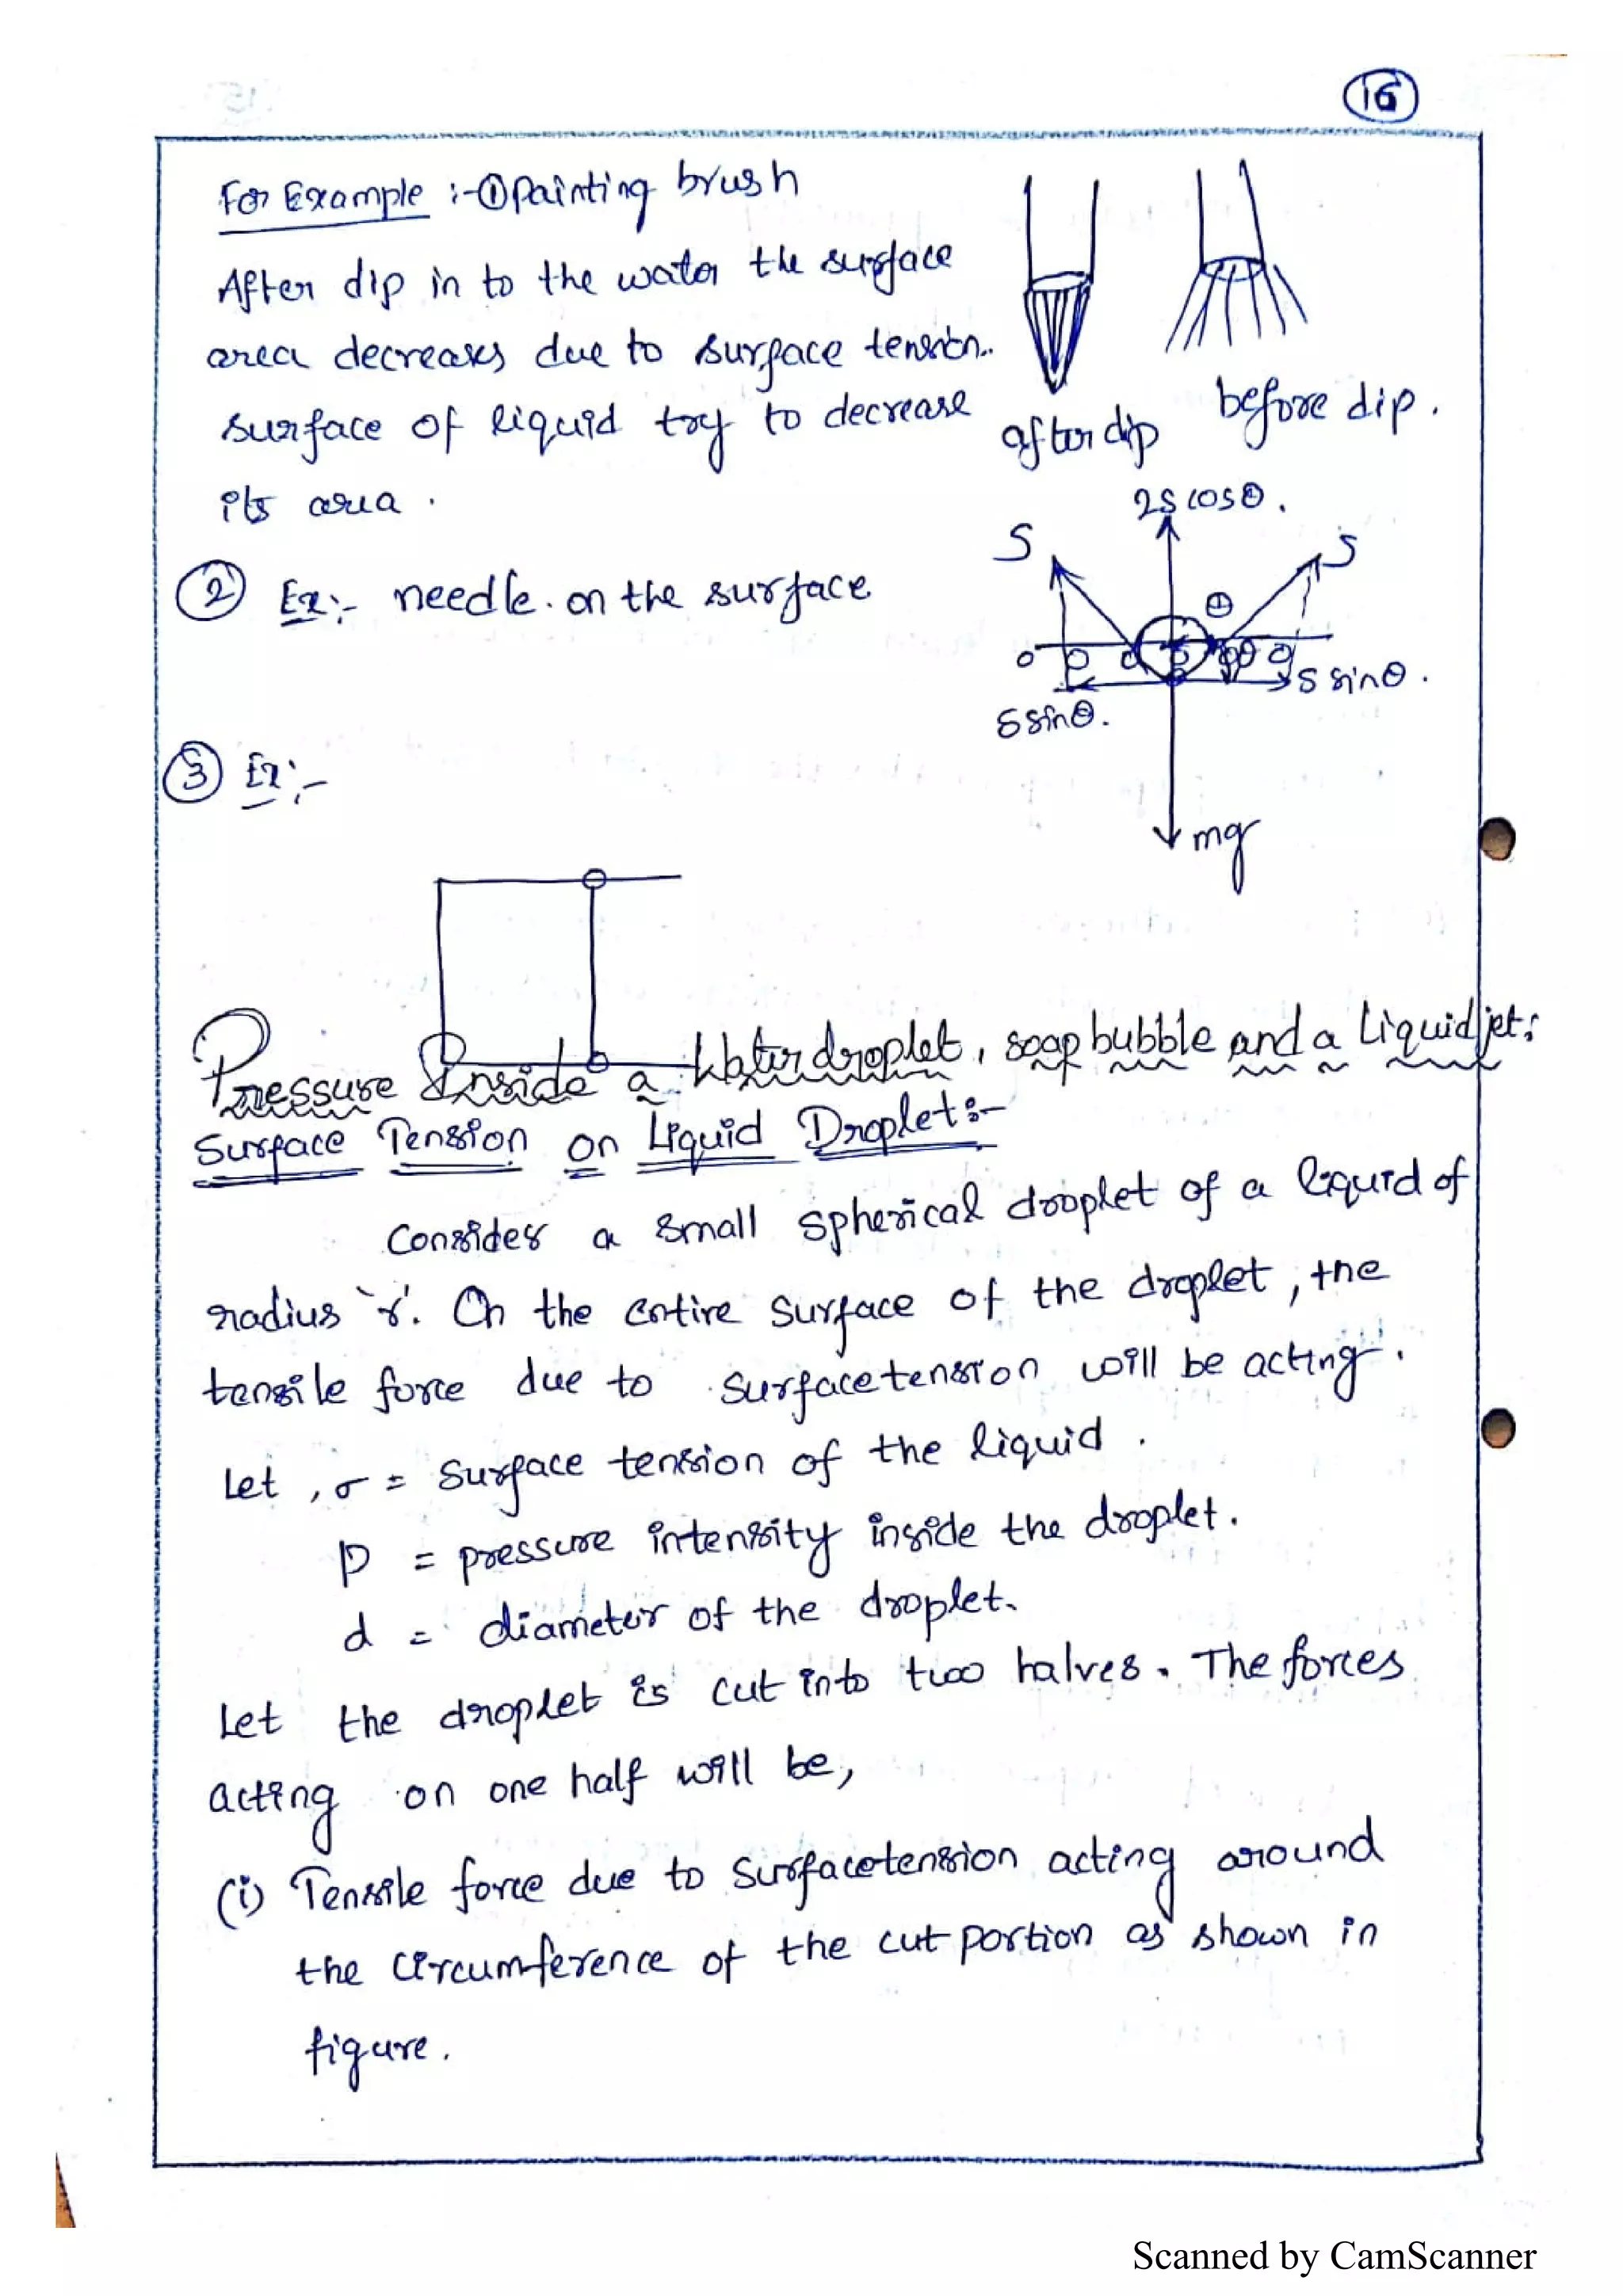 16
For Example :- ① Painting brush
After dip in to the water the surface
area decreases due to surface tension.
surface of liquid try to decrease
its area .
after dip
before dip .
2S cosθ .
S
S
② Ex:- needle on the surface
θ
S sinθ .
S sinθ .
mg
③ Ex:-
Pressure Inside a Water droplet, soap bubble and a Liquid jet:
Surface Tension on Liquid Droplet:-
Consider a small spherical droplet of a liquid of
radius 'r'. On the entire surface of the droplet, the
tensile force due to surface tension will be acting.
Let , σ = Surface tension of the liquid .
P = pressure intensity inside the droplet .
d = diameter of the droplet.
Let the droplet is cut into two halves. The forces
acting on one half will be,
(i) Tensile force due to surface tension acting around
the circumference of the cut portion as shown in
figure .
Scanned by CamScanner